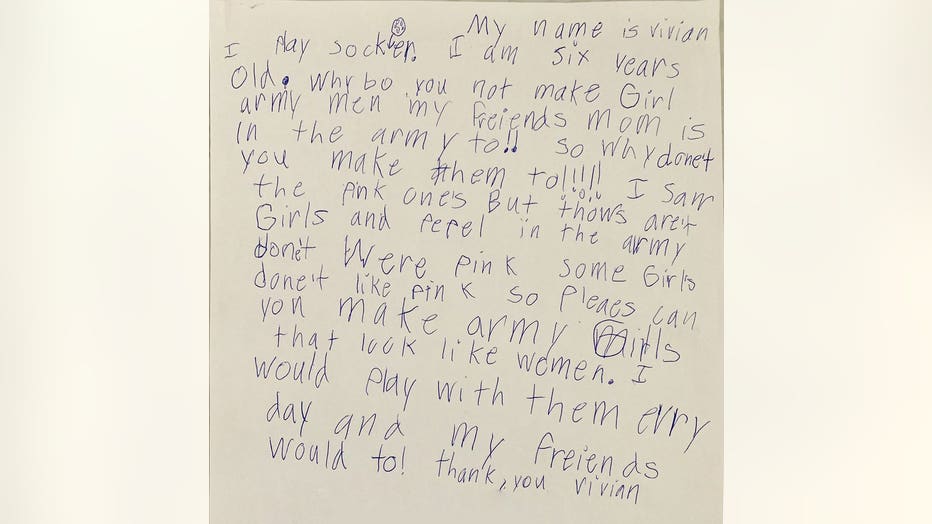 My name is vivian
I play sockien. I am six years
old. Why bo you not make Girl
army men my freiends mom is
in the army to!! so why donet
you make them to!!!!! I saw
the pink ones But thows are't
Girls and pepel in the army
donet Were pink some Girls
done't like pink so pleaes can
you make army Girls
that look like women. I
would play with them evry
day and my freiends
would to! thank, you vivian